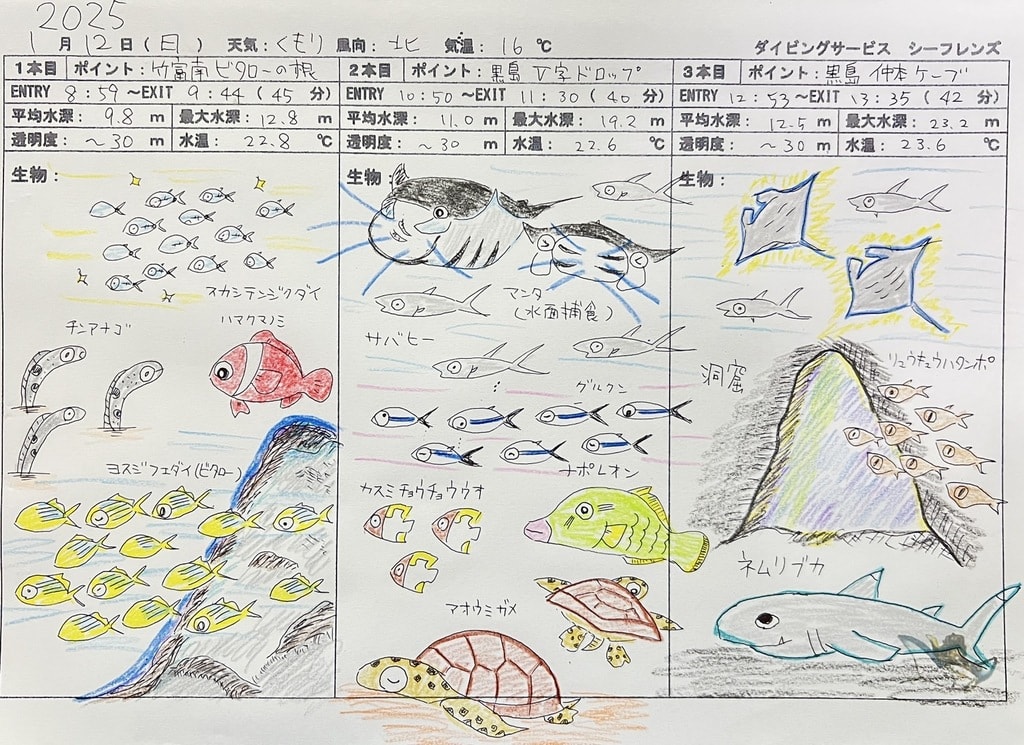 2025
1月12日(日) 天気:くもり 風向:北 気温:16℃ ダイビングサービス シーフレンズ
1本目 ポイント:竹富南ビタローの根
ENTRY 8:59〜EXIT 9:44(45分)
平均水深: 9.8 m 最大水深:12.8 m
透明度:〜30 m 水温: 22.8 ℃
生物:
スカシテンジクダイ
チンアナゴ
ハマクマノミ
ヨスジフエダイ(ビタロー)
2本目 ポイント:黒島 V字ドロップ
ENTRY 10:50〜EXIT 11:30(40分)
平均水深: 11.0 m 最大水深: 19.2 m
透明度:〜30 m 水温: 22.6 ℃
生物:
マンタ
(水面捕食)
サバヒー
グルクン
ナポレオン
カスミチョウチョウウオ
アオウミガメ
3本目 ポイント:黒島 仲本ケーブ
ENTRY 12:53〜EXIT 13:35(42分)
平均水深: 12.5 m 最大水深: 23.2 m
透明度:〜30 m 水温: 23.6 ℃
生物:
洞窟
リュウキュウハタンポ
ネムリブカ